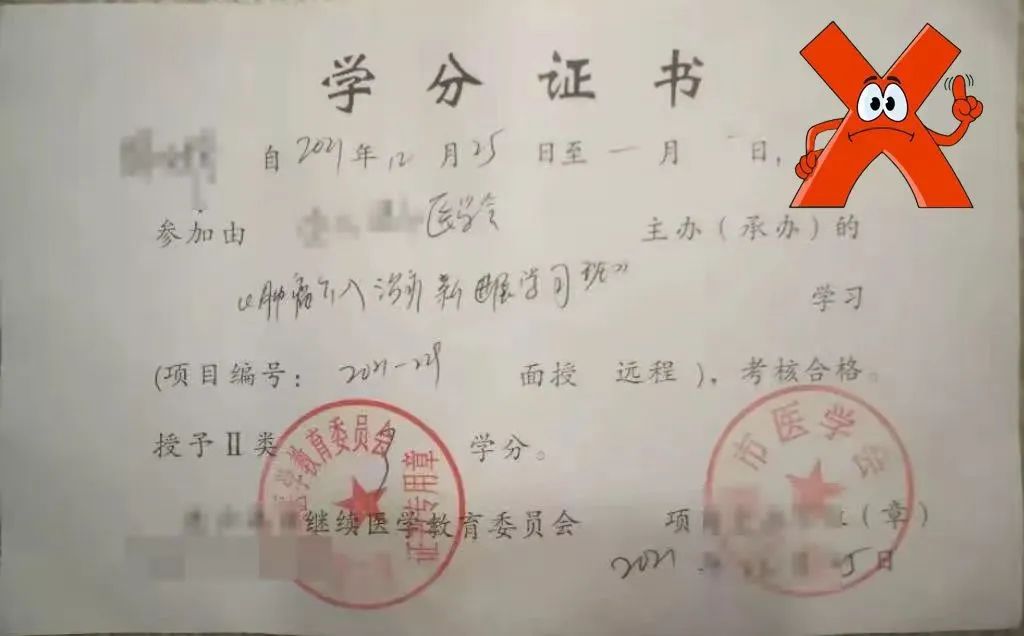 学分证书
自2021年12月25日至一月 日，
参加由 医学会 主办（承办）的
《肿瘤介入治疗新进展学习班》 学习
(项目编号： 2021-229 面授 远程 )，考核合格。
授予Ⅱ类 学分。
继续医学教育委员会 项 （章）
2021 5日
学教育委员会
证书专用章
市医学会